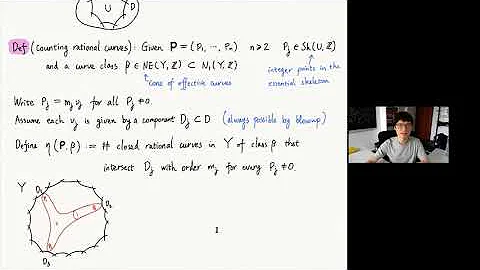 U
D
Def (counting rational curves): Given P = (P₁, ⋯, Pₙ) n ≥ 2 Pⱼ ∈ Sk(U, ℤ)
and a curve class β ∈ NE(Y, ℤ) ⊂ N₁(Y, ℤ)
cone of effective curves
integer points in the
essential skeleton
Write Pⱼ = mⱼ νⱼ for all Pⱼ ≠ 0.
Assume each νⱼ is given by a component Dⱼ ⊂ D. (always possible by blowup)
Define η(P, β) := # closed rational curves in Y of class β that
intersect Dⱼ with order mⱼ for every Pⱼ ≠ 0.
Y
D₁
D₂
D₃